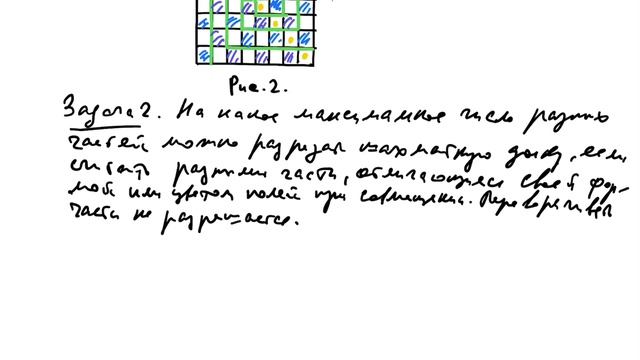 Рис. 2.
Задача 2. На какое максимальное число разных
частей можно разрезать шахматную доску, если
считать разными части, отличающиеся своей фор-
мой или цветом полей при совмещении. Переворачивать
части не разрешается.